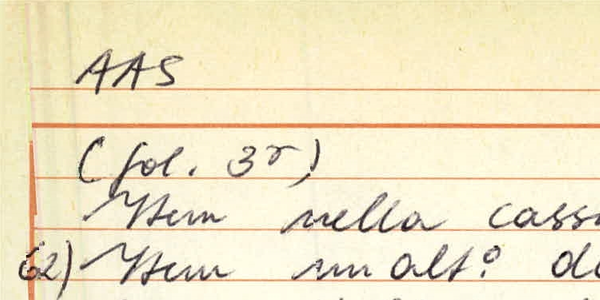 AAS
(fol. 3r)
Item nella cass
62) Item un alt.º d